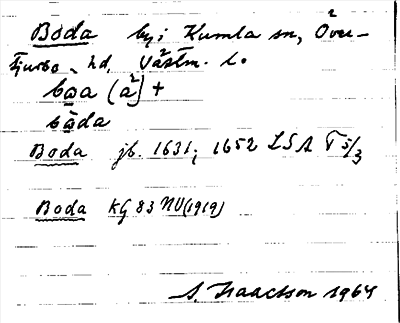 Boda by i Kumla sn, Över-
tjurbo hd, Västm. l.
boa (å²) +
båda
Boda jb. 1631; 1652 LSA T 5/3
Boda KG 83 NV (1919)
S. Isaacsson 1964